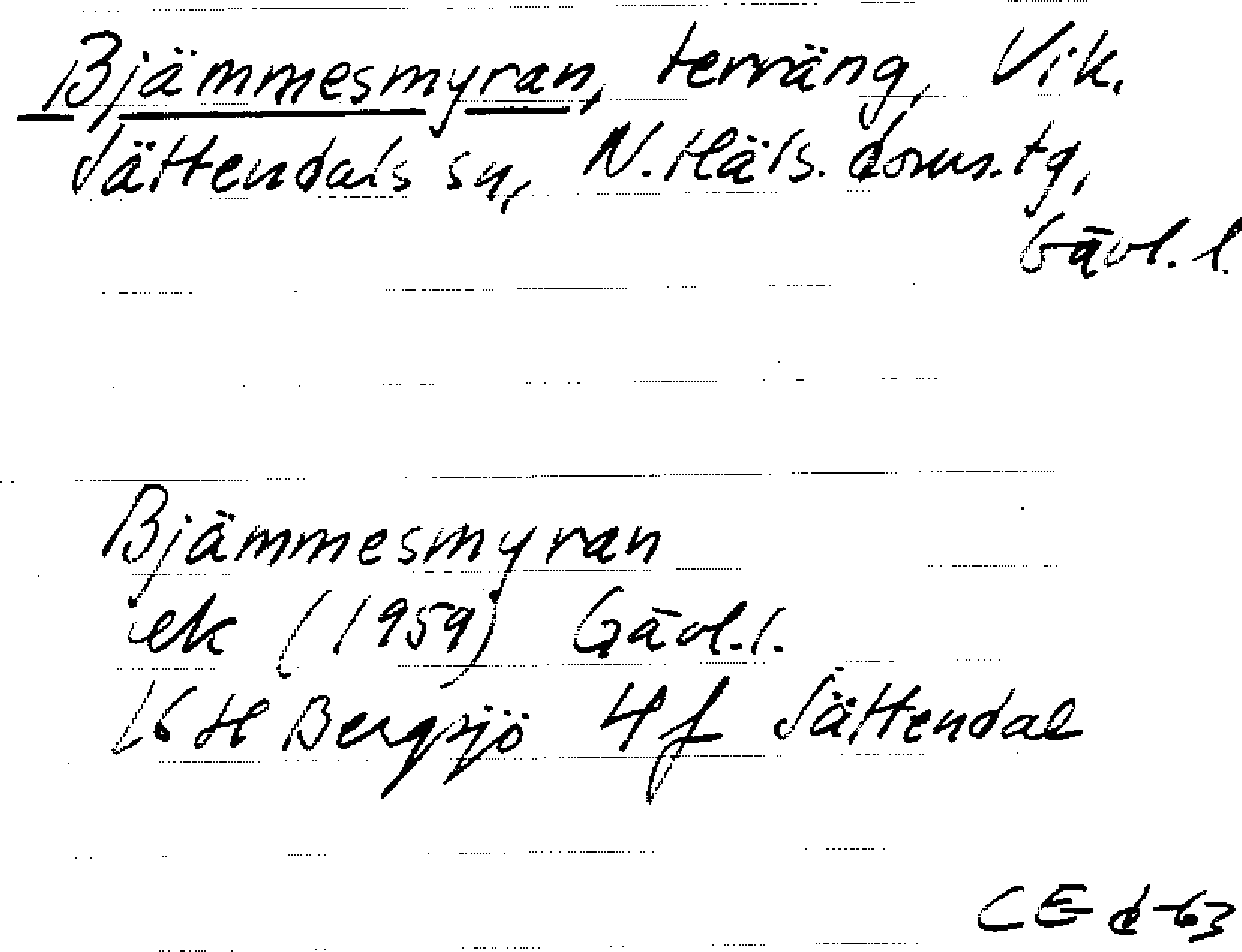 Bjämmesmyran, terräng, Vik.
Jättendals sn, N. Häls. doms. tg,
Gävl. l.
Bjämmesmyran
ek (1959) Gävl. l.
16 H Bergsjö 4 f Jättendal
CE d-63